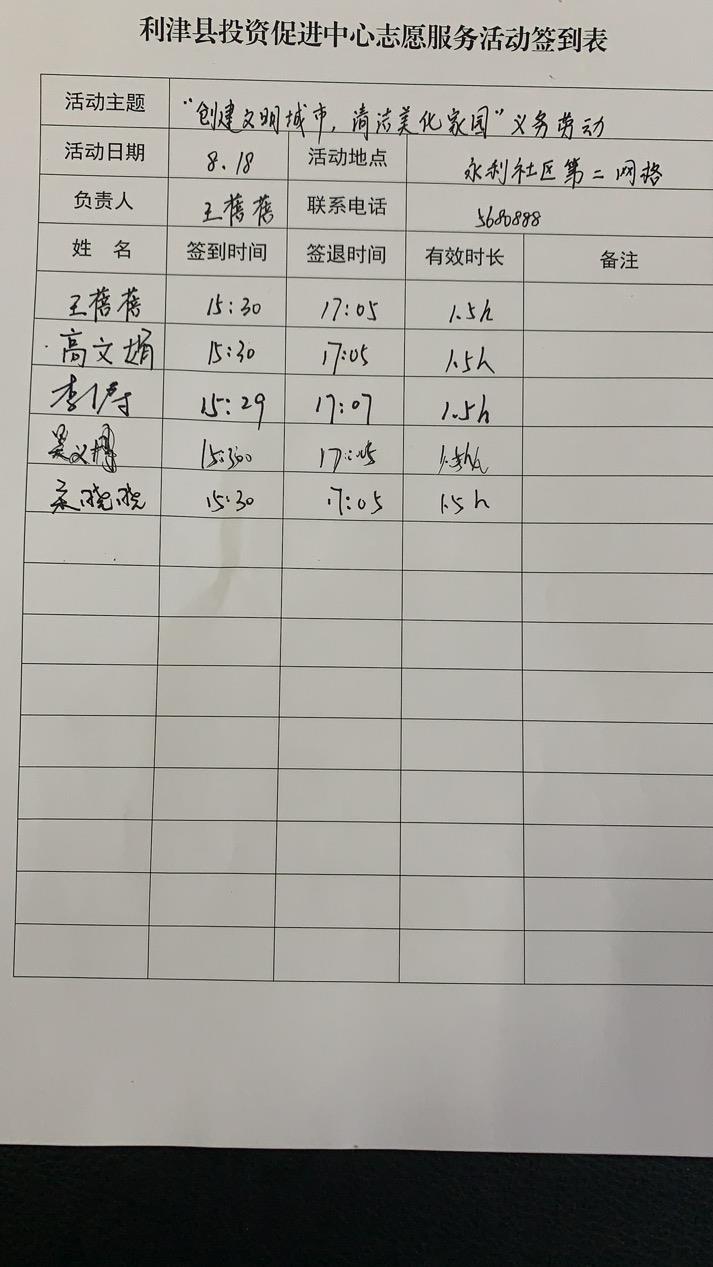 利津县投资促进中心志愿服务活动签到表
活动主题 "创建文明城市，清洁美化家园"义务劳动
活动日期 8.18 活动地点 永利社区第二网格
负责人 王蓓蓓 联系电话 5680888
姓 名 签到时间 签退时间 有效时长 备注
王蓓蓓 15:30 17:05 1.5h
高文娟 15:30 17:05 1.5h
李 15:29 17:07 1.5h
吴文 15:30 17:05 1.5h
晓晓 15:30 17:05 1.5h